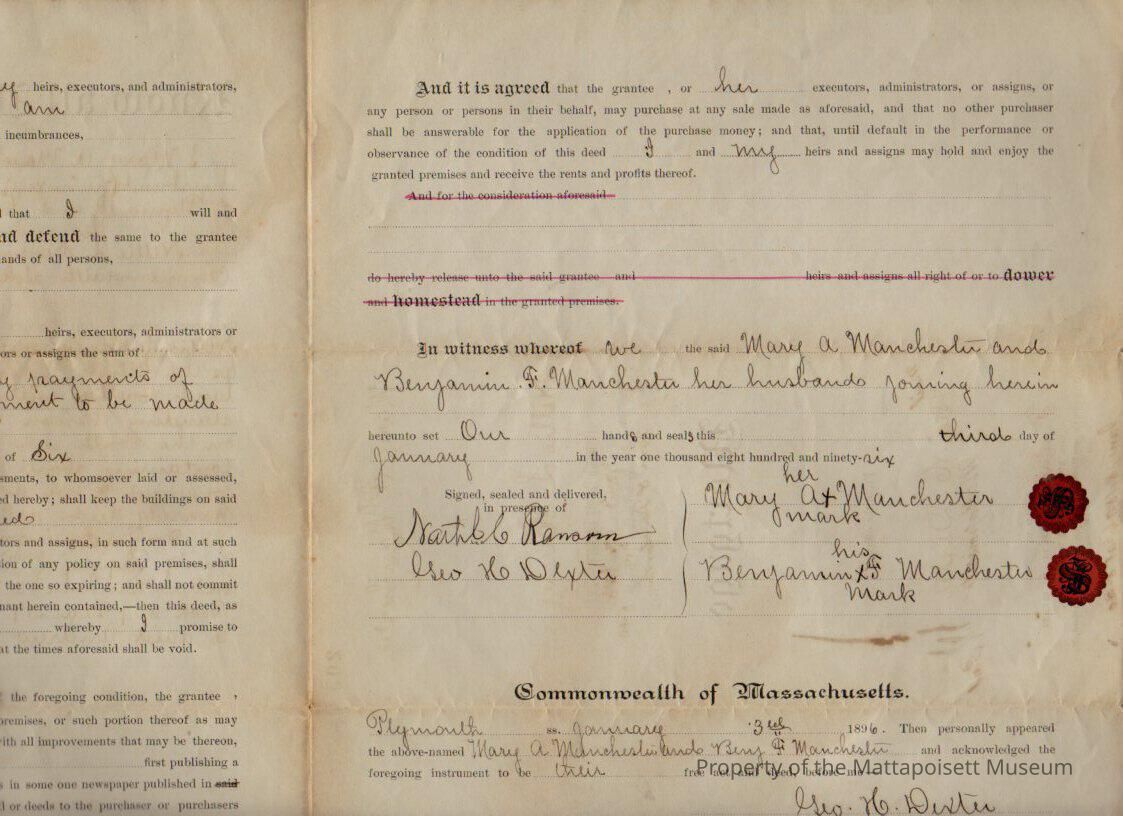 heirs, executors, and administrators,
am
incumbrances,
that I will and
defend the same to the grantee
ands of all persons,
heirs, executors, administrators or
ors or assigns the sum of
payments of
ment to be made
of Six
sments, to whomsoever laid or assessed,
d hereby; shall keep the buildings on said
tors and assigns, in such form and at such
ion of any policy on said premises, shall
the one so expiring; and shall not commit
nant herein contained,—then this deed, as
whereby I promise to
at the times aforesaid shall be void.
the foregoing condition, the grantee ,
premises, or such portion thereof as may
ith all improvements that may be thereon,
first publishing a
s in some one newspaper published in said
l or deeds to the purchaser or purchasers
And it is agreed that the grantee , or her executors, administrators, or assigns, or
any person or persons in their behalf, may purchase at any sale made as aforesaid, and that no other purchaser
shall be answerable for the application of the purchase money; and that, until default in the performance or
observance of the condition of this deed I and my heirs and assigns may hold and enjoy the
granted premises and receive the rents and profits thereof.
And for the consideration aforesaid
do hereby release unto the said grantee and heirs and assigns all right of or to dower
and homestead in the granted premises.
In witness whereof we the said Mary A Manchester and
Benjamin F. Manchester her husband joining herein
hereunto set Our hands and seals this third day of
January in the year one thousand eight hundred and ninety-six
Signed, sealed and delivered,
in presence of
Nath'l C Ransom
Geo H Dexter
her
Mary A x Manchester
mark
his
Benjamin x F Manchester
Mark
Commonwealth of Massachusetts.
Plymouth ss. January 3rd 1896. Then personally appeared
the above-named Mary A Manchester and Benj F Manchester and acknowledged the
foregoing instrument to be their free act and deed, before me
Geo. H. Dexter
Property of the Mattapoisett Museum